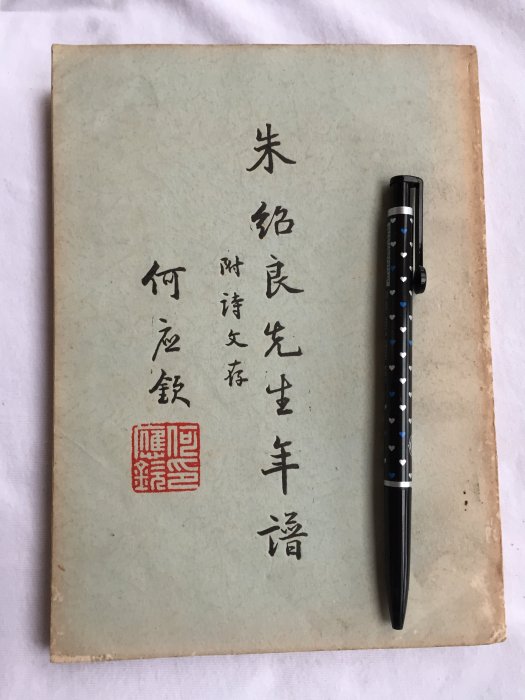 朱紹良先生年譜
附詩文存
何应欽
何應欽印